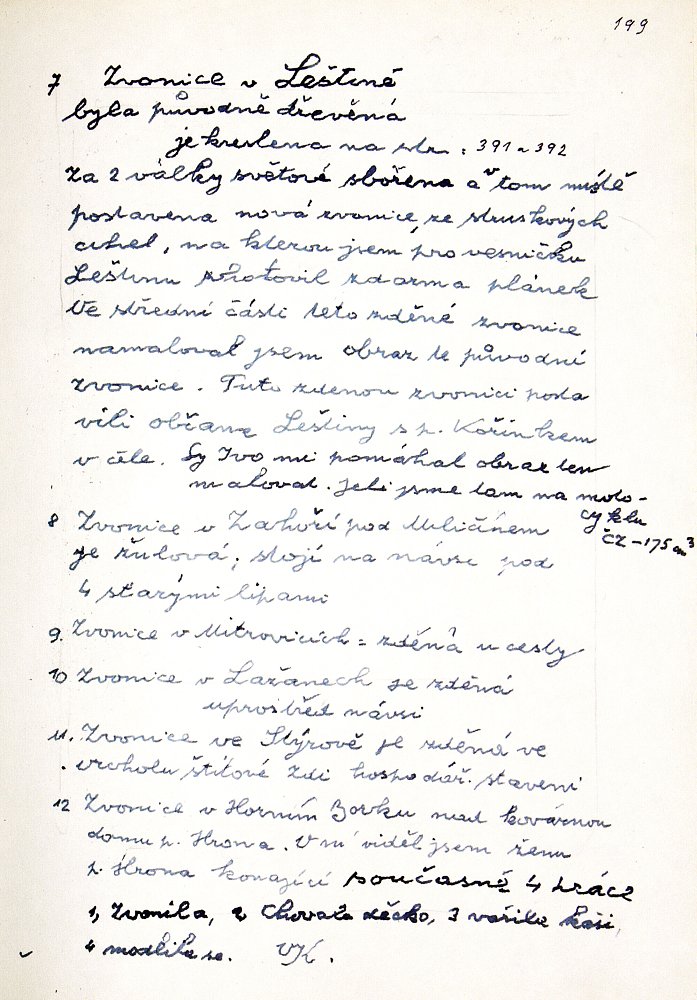 199
7 Zvonice v Leštině
byla původně dřevěná
je kreslena na str. 391 a 392
Za 2 války světové sbořena a v tom místě
postavena nová zvonice, ze struskových
cihel, na kterou jsem pro vesničku
Leštinu zhotovil zdarma plánek
Ve střední části této zděné zvonice
namaloval jsem obraz té původní
zvonice. Tuto zděnou zvonici posta
vili občané Leštiny s p. Kořínkem
v čele. Sy Ivo mi pomáhal obraz ten
malovat. Jeli jsme tam na moto-
cyklu
ČZ – 175 cm3
8 Zvonice v Zahoří pod Miličínem
je žulová; stojí na návsi pod
4 starými lipami
9. Zvonice v Mitrovicích = zděná u cesty
10 Zvonice v Lažanech je zděná
uprostřed návsi
11. Zvonice ve Stýrově je zděná ve
vrcholu štítové zdi hospodář. stavení
12 Zvonice v Horním Borku nad kovárnou
domu p. Hrona. V ní viděl jsem ženu
p. Hrona konající současně 4 práce
1, Zvonila, 2 Chovala děcko, 3 vařila kaši,
4 modlila se. VK.